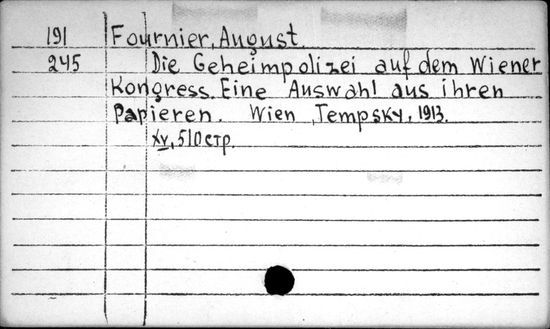 191 Fournier, August.
245 Die Geheimpolizei auf dem Wiener
Kongress. Eine Auswahl aus ihren
Papieren. Wien, Tempsky, 1913.
XV, 510 стр.